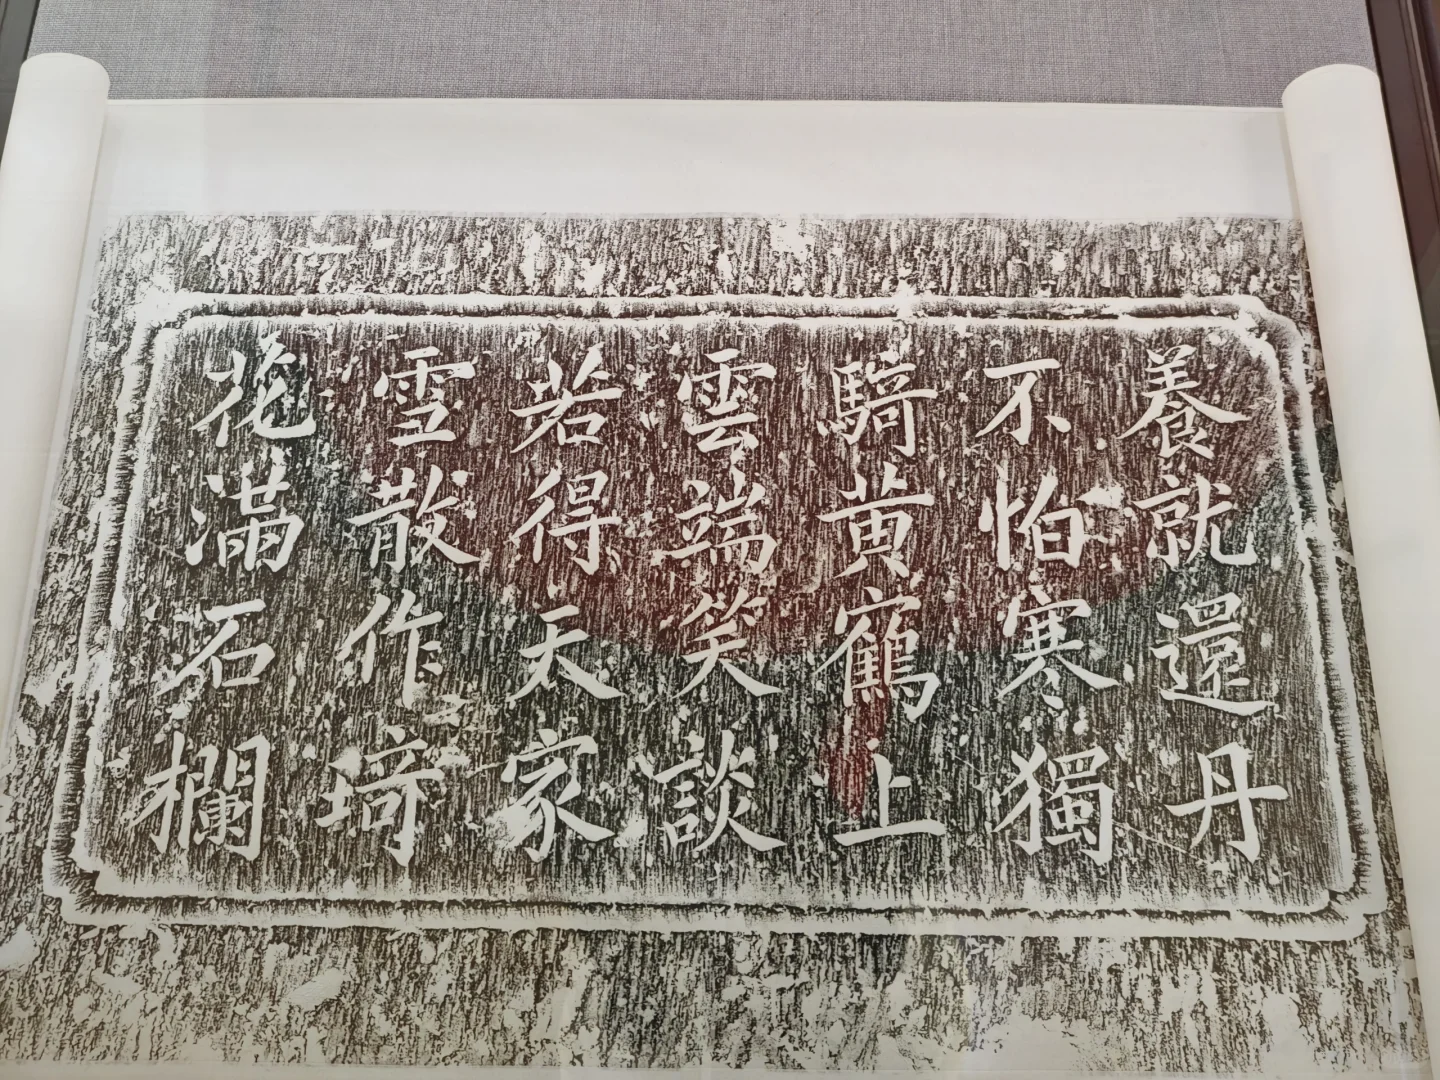 養就還丹
不怕寒獨
騎黃鶴上
雲端笑談
若得天家
雪散作琦
花滿石欄